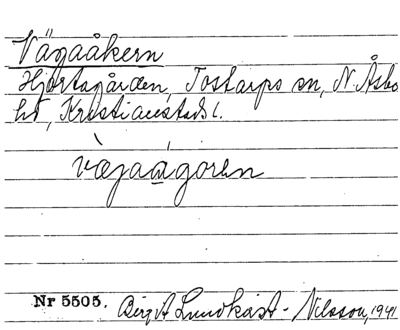 Vägaåkern
Hjortsgården, Tostarps sn, N. Åsbo
hd, Kristianstads l.
vægaágoren
Nr 5505. Birgit Lundkvist - Nilsson, 1941